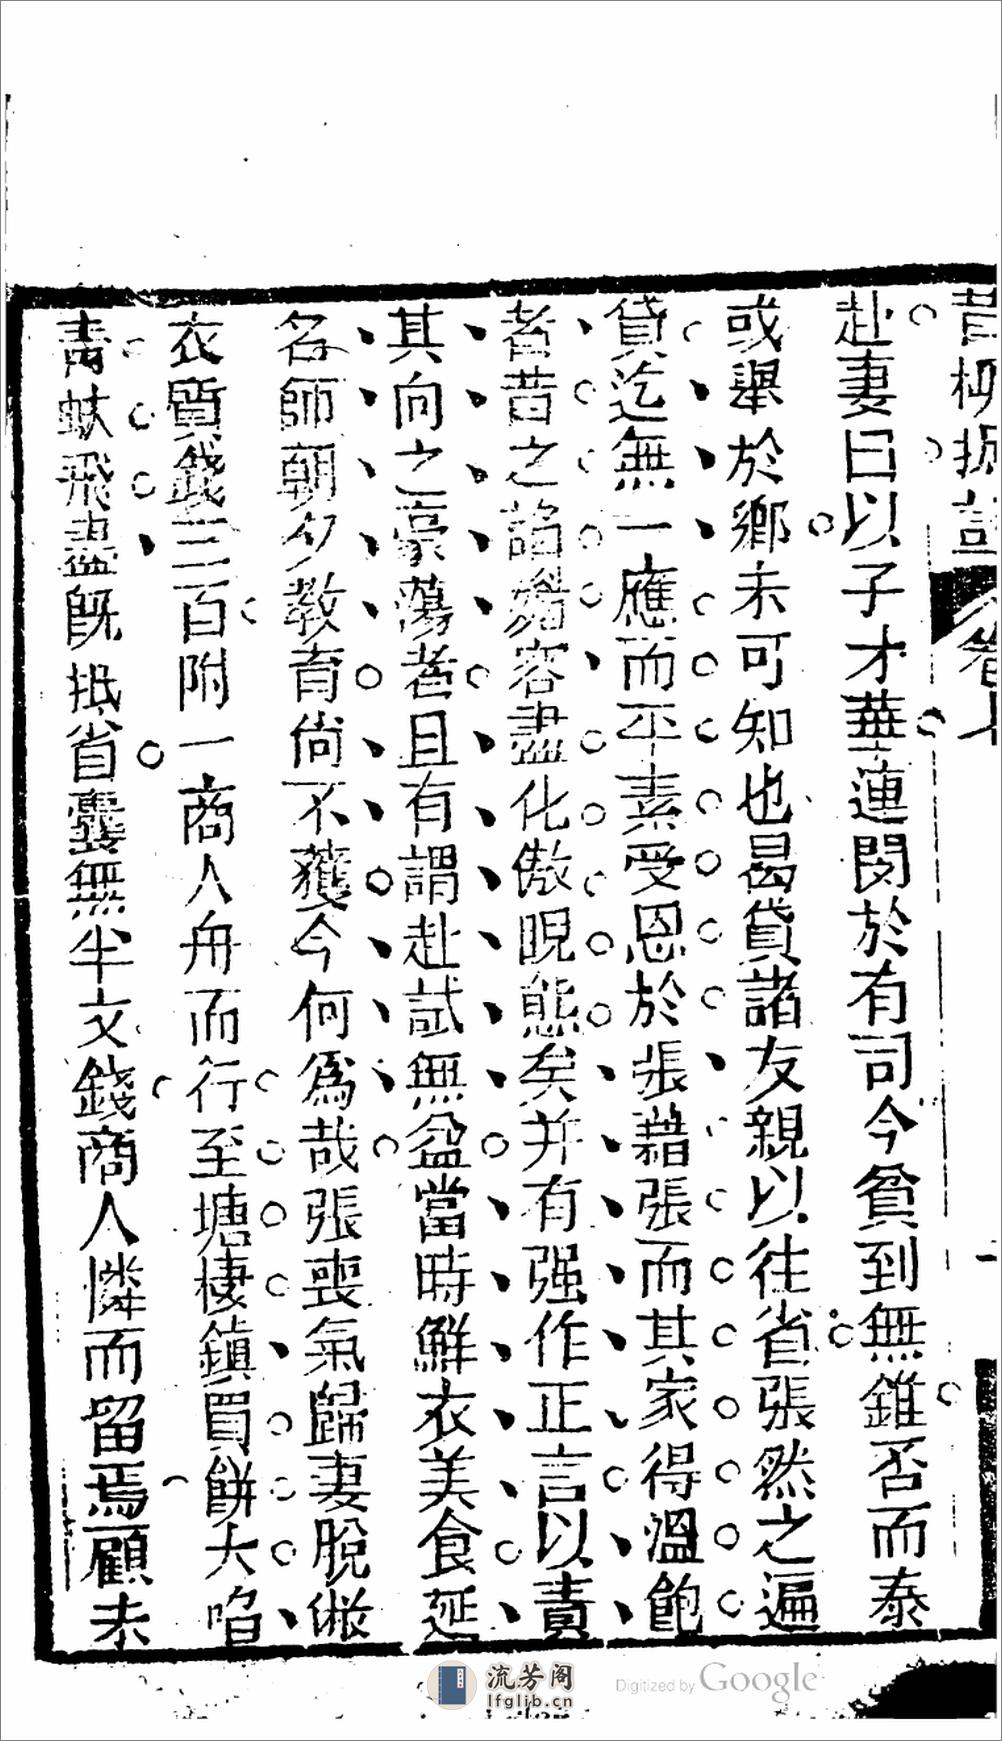 赴妻曰以子才華連閔於有司今貧到無錐否而泰
或舉於鄉未可知也曷貸諸友親以往省張然之遍
貸迄無一應而平素受恩於張藉張而其家得溫飽
者昔之諂媚容盡化傲睨態矣并有强作正言以責
其向之豪蕩者且有謂赴試無盆當時鮮衣美食延
名師朝夕教育尙不獲今何爲哉張喪氣歸妻脫嫁
衣質錢三百附一商人舟而行至塘棲鎮買餅大啗
靑蚨飛盡旣抵省囊無半文錢商人憐而留焉顧未
流芳阁
lfglib.cn
Digitized by Google